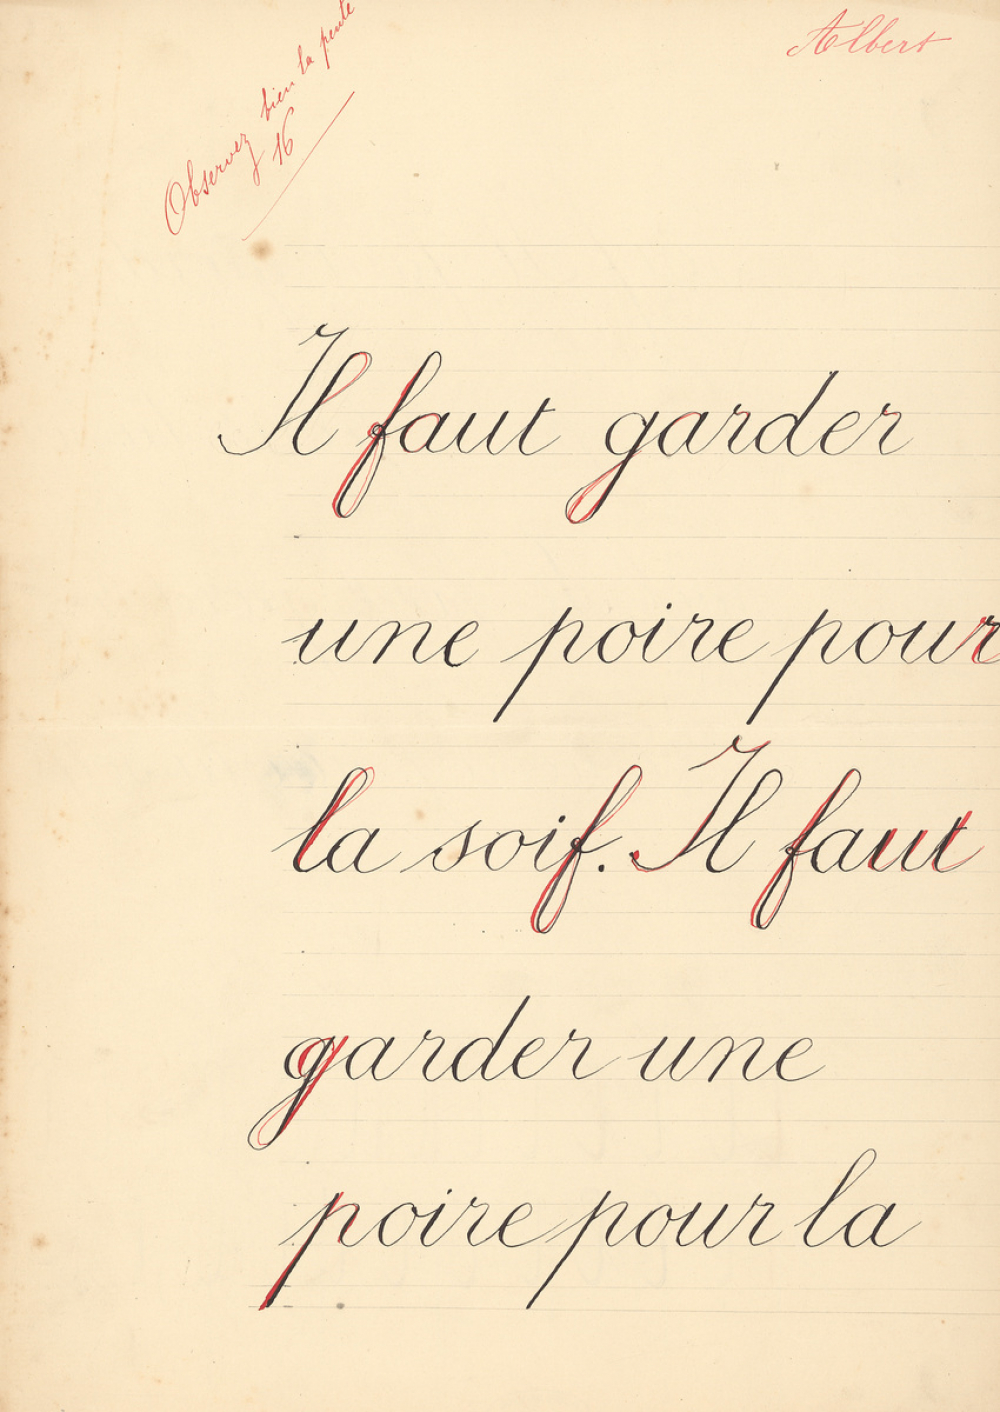 Observez bien la pente
16
Albert
Il faut garder
une poire pour
la soif. Il faut
garder une
poire pour la